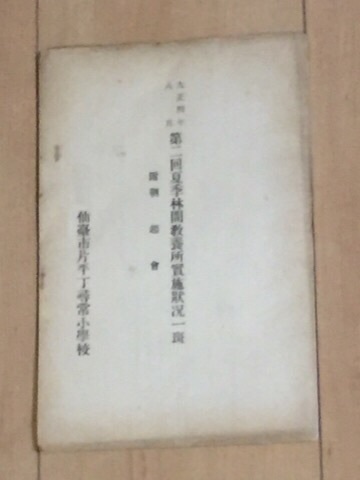 大正四年
八月
第二回夏季林間教養所實施狀況一斑
會
仙臺市片平丁尋常小學校